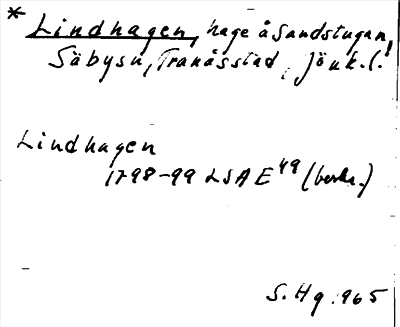 * Lindhagen, hage å Sandstugan,
Säbysn, Tranåsstad, Jönk.l.!
Lindhagen
1798-99 LSA E49 (beskr.)
S. Hg. 965